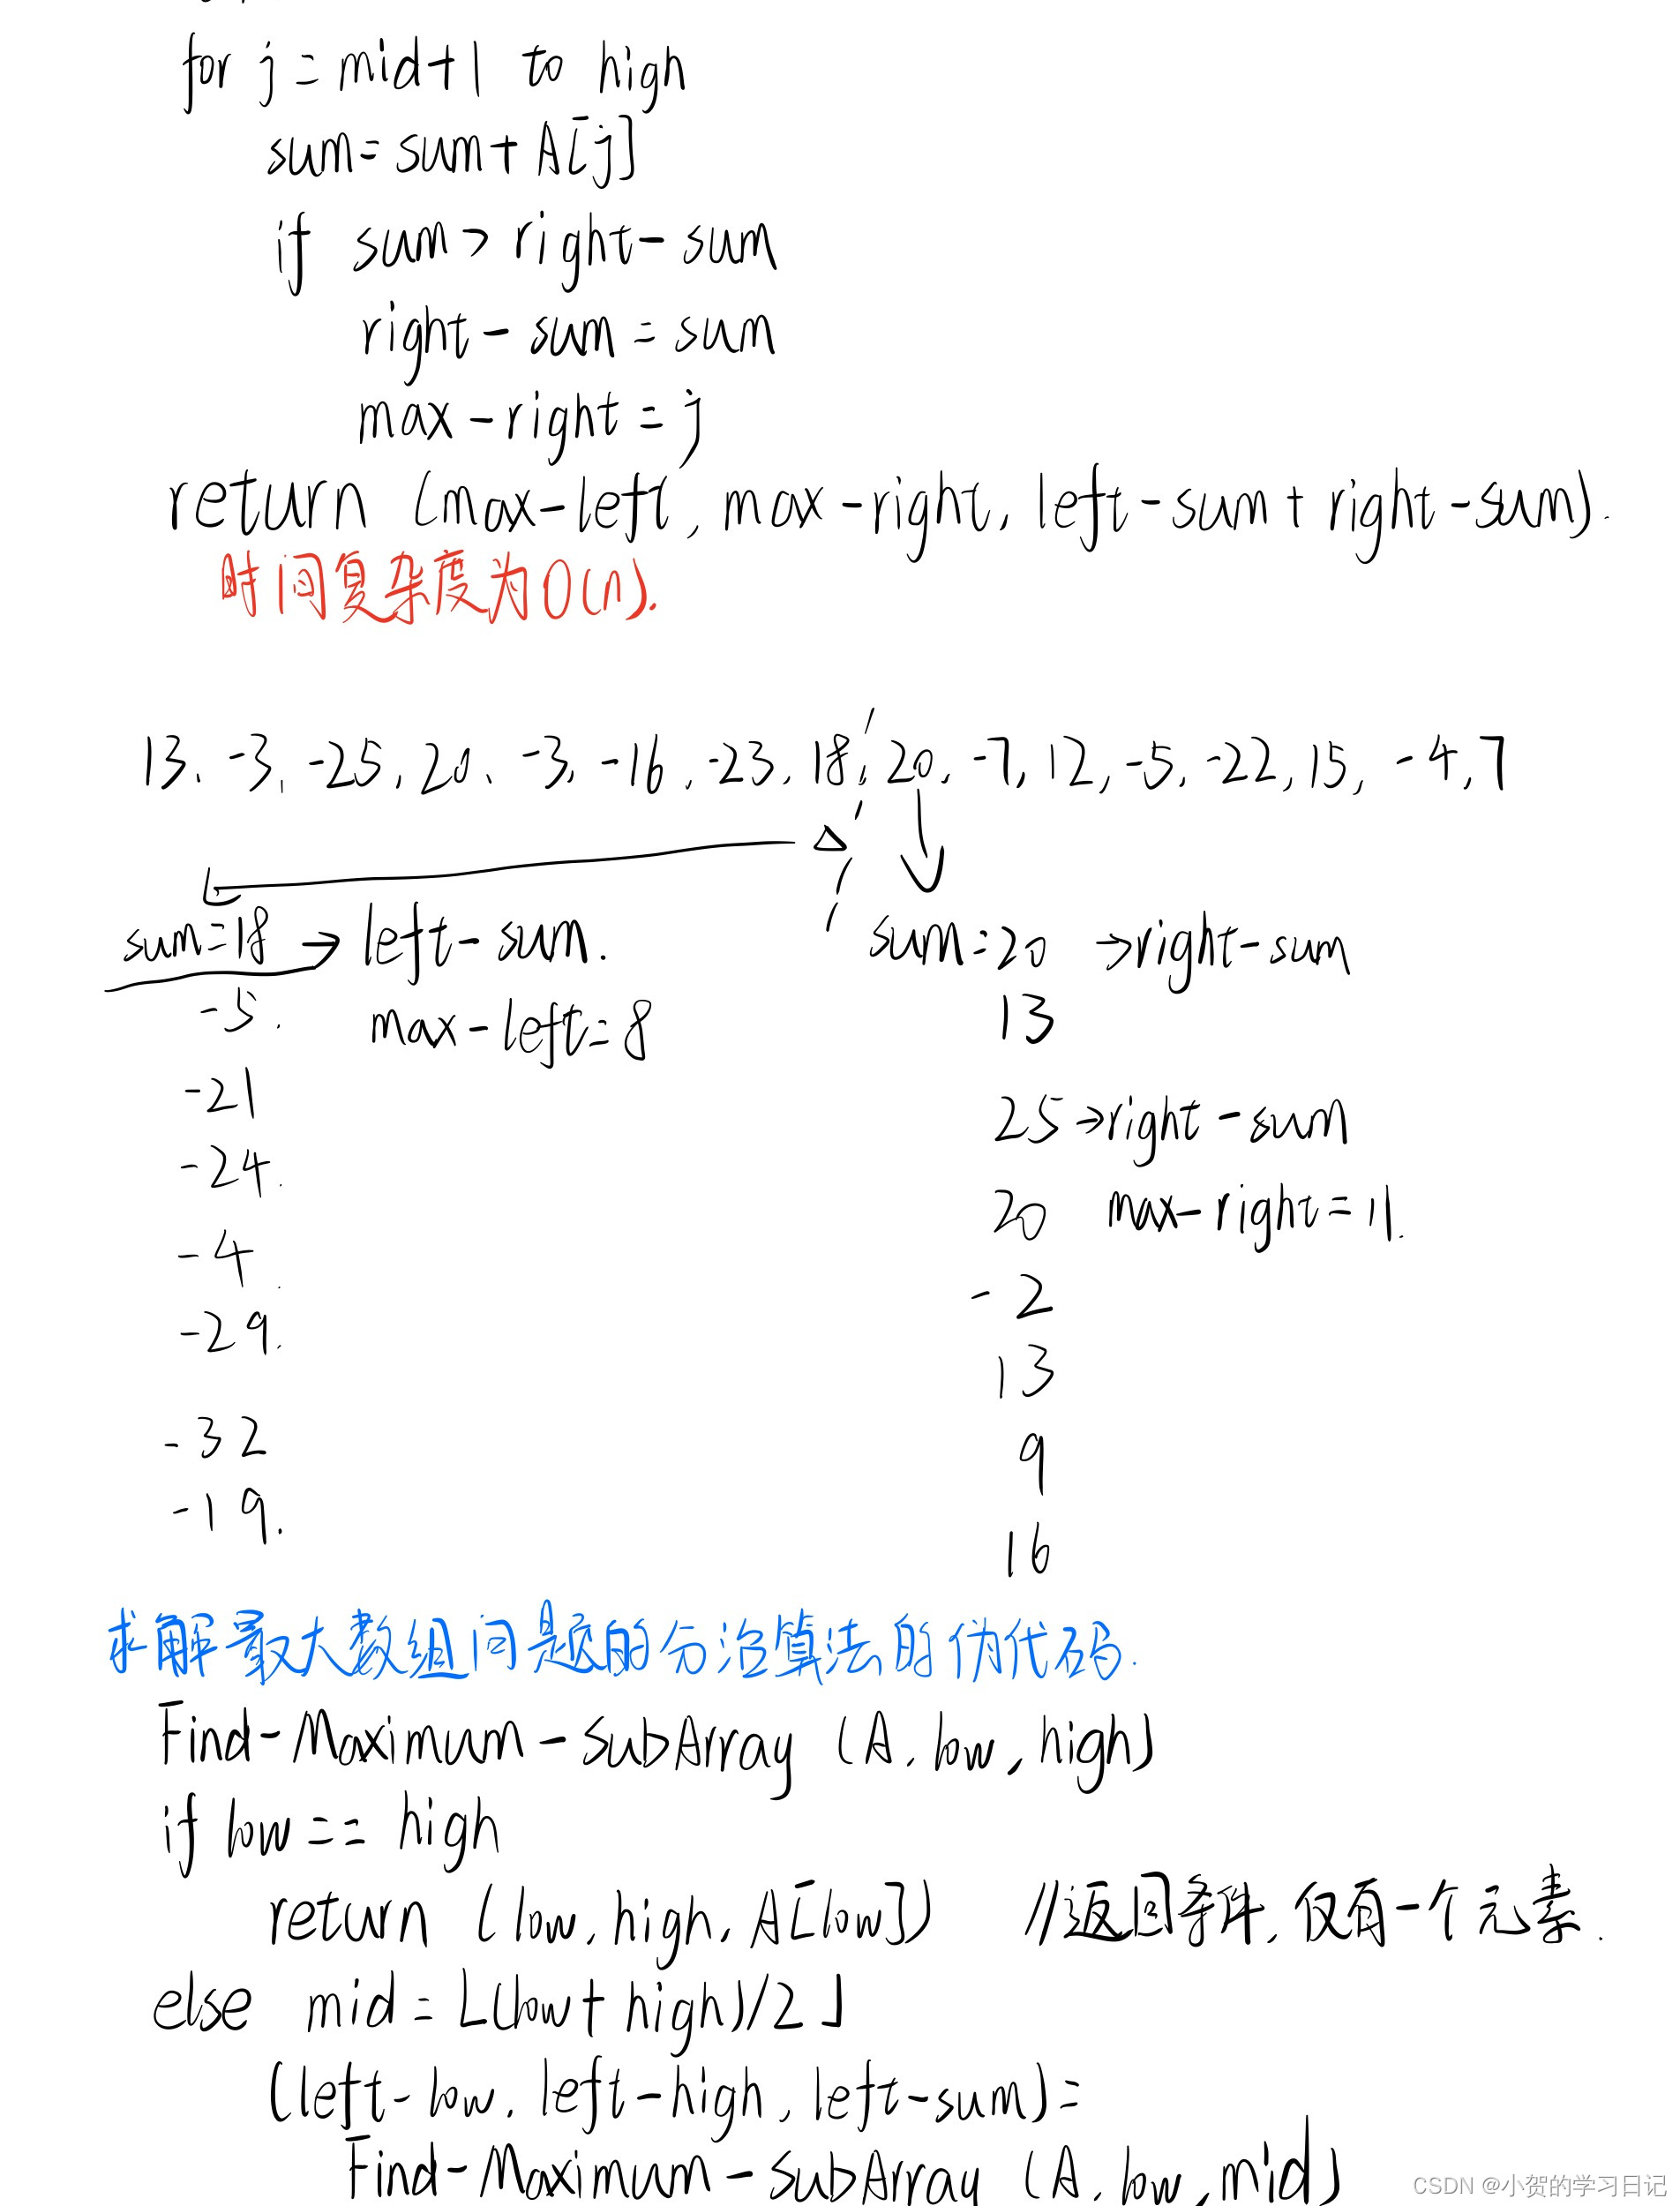 for j = mid+1 to high
sum = sum + A[j]
if sum > right-sum
right-sum = sum
max-right = j
return (max-left, max-right, left-sum + right-sum).
时间复杂度为O(n).
13、-3、-25,20、-3,-16,-23,18,20,-7,12,-5,-22,15,-4,7
sum=18 → left-sum.
sum=20 → right-sum
-5.
max-left=8
13
-21
25 → right-sum
-24.
20
max-right=11.
-4.
-2
-29.
13
-32
9
-19.
16
求解最大数组问题的分治算法的伪代码.
Find-Maximum-subArray (A, low, high)
if low == high
return (low, high, A[low]) //返回条件,仅有一个元素.
else mid = ⌊(low + high)/2⌋
(left-low, left-high, left-sum) =
Find-Maximum-subArray (A, low, mid)
CSDN @小贺的学习日记